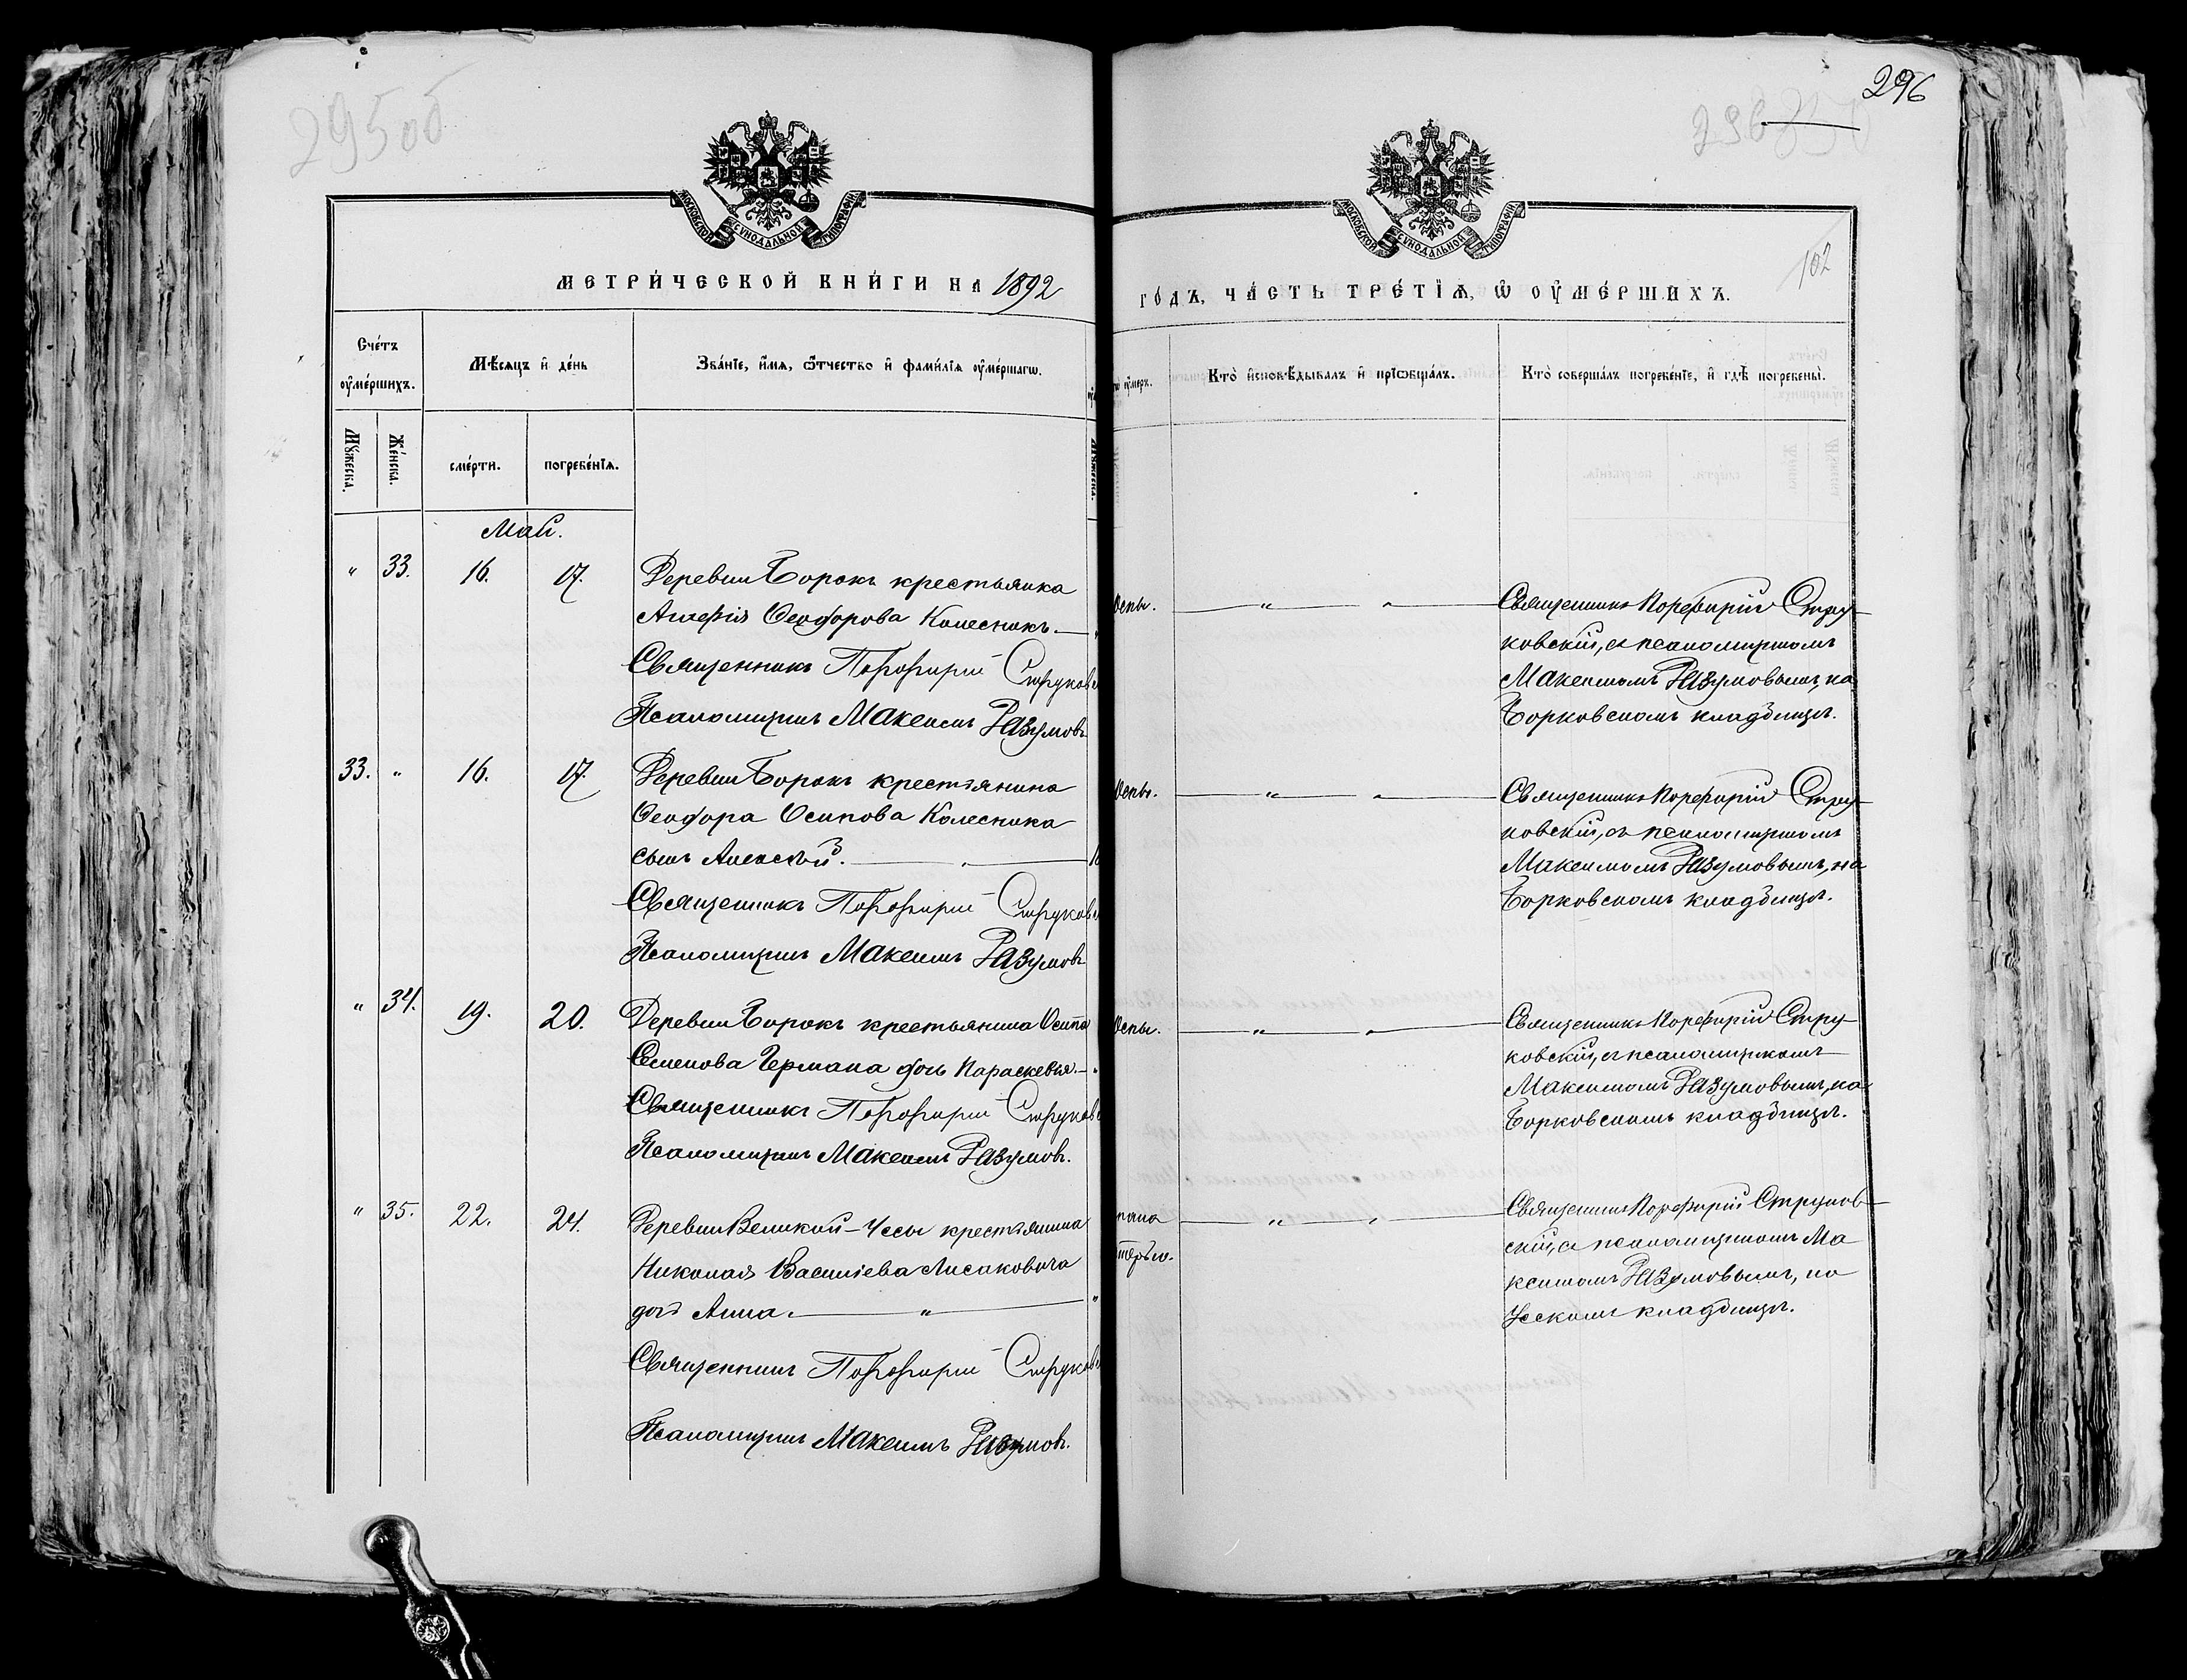 295об
296
МОСКОВСКОЙ СѴНОДАЛЬНОЙ ТИПОГРАФІИ
МОСКОВСКОЙ СѴНОДАЛЬНОЙ ТИПОГРАФІИ
102
МЕТРИ́ЧЕСКОЙ КНИ́ГИ НА 1892
ГО́ДЪ, ЧА́СТЬ ТРЕ́ТІѦ, Ѡ ОУ҆МЕ́РШИХЪ.
Сче́тъ оу҆ме́ршихъ.
Мѣ́сяцъ и҆ де́нь
Зва́нїе, и҆́мѧ, ѻ҆́тчество и҆ фами́лїѧ оу҆ме́ршагѡ.
оу҆́меръ.
Кто̀ и҆сповѣ́дывалъ и҆ прїѡбща́лъ.
Кто̀ соверша́лъ погребе́нїе, и҆ гдѣ̀ погребены̀.
Мꙋ́жеска.
Же́нска.
сме́рти.
погребе́нїѧ.
Май.
" 33. 16. 17. Деревни Борокъ крестьянка
Агафія Ѳеодорова Колесникъ.
Священникъ Порфирій Струковс
Псаломщикъ Максимъ Разумовъ
Оспы.
Священникъ Порфирій Стру-
ковскій, съ псаломщикомъ
Максимомъ Разумовымъ, на
Борковскомъ кладбищѣ.
33. " 16. 17. Деревни Борокъ крестьянина
Ѳеодора Осипова Колесника
сынъ Алексѣй.
Священникъ Порфирій Струковс
Псаломщикъ Максимъ Разумовъ
Оспы.
Священникъ Порфирій Стру-
ковскій, съ псаломщикомъ
Максимомъ Разумовымъ, на
Борковскомъ кладбищѣ.
" 34. 19. 20. Деревни Борокъ крестьянина Осипа
Семенова Германа дочь Параскевья.
Священникъ Порфирій Струковс
Псаломщикъ Максимъ Разумовъ.
Оспы.
Священникъ Порфирій Стру-
ковскій, съ псаломщикомъ
Максимомъ Разумовымъ, на
Борковскомъ кладбищѣ.
" 35. 22. 24. Деревни Великой-Уссы крестьянина
Николая Василіева Лисаковича
дочь Анна.
Священникъ Порфирій Струковс
Псаломщикъ Максимъ Разумовъ.
Священникъ Порфирій Струков-
скій, съ псаломщикомъ Ма
ксимомъ Разумовымъ, на
Усскомъ кладбищѣ.